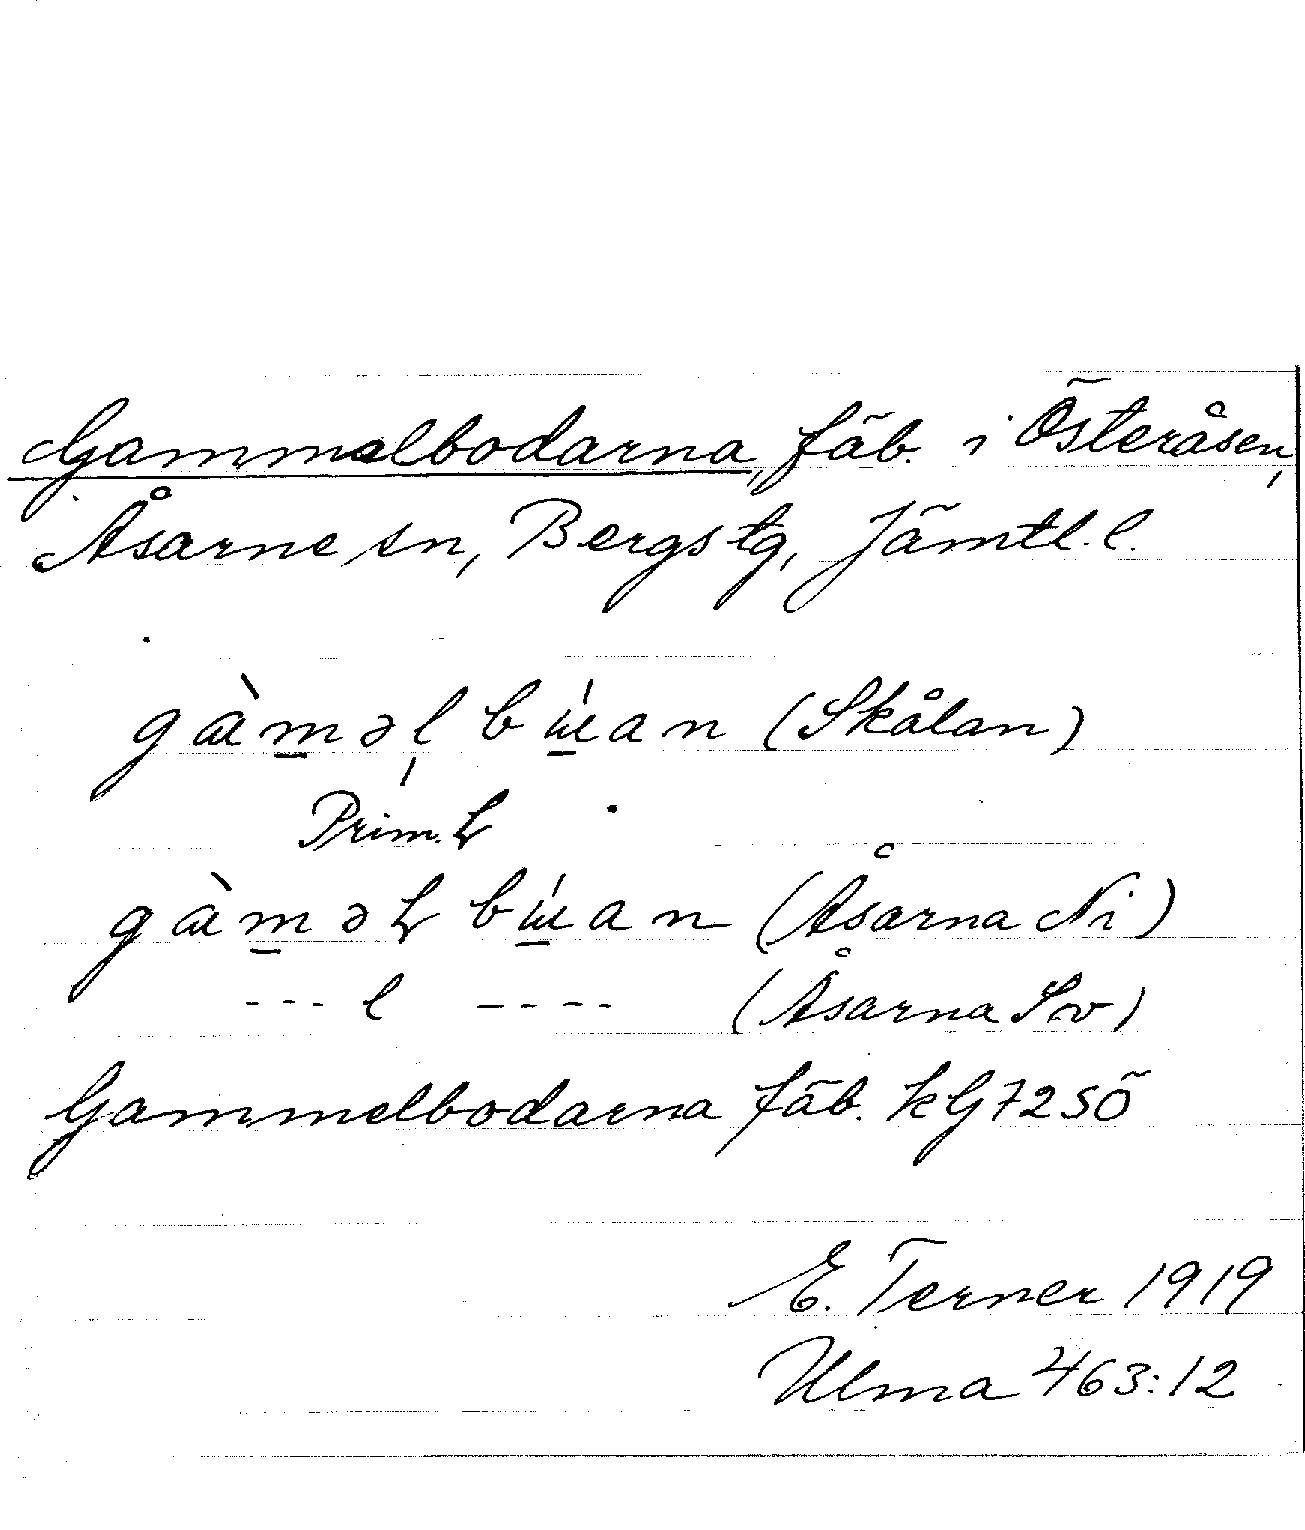 Gammelbodarna, fäb. i Österåsen,
Åsarne sn, Bergs tg, Jämtl. l.
gàməl bɯ́an (Skålan)
Prim. ł
gàməł bɯ́an (Åsarna Ni)
--- l ---- (Åsarna Sv)
Gammelbodarna fäb. kG72SÖ
E. Terner 1919
Ulma 463:12